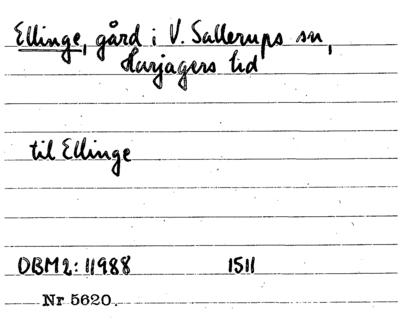 Ellinge, gård i V. Sallerups sn,
Harjagers hd
til Ellinge
DBM2: 11988 1511
Nr 5620.